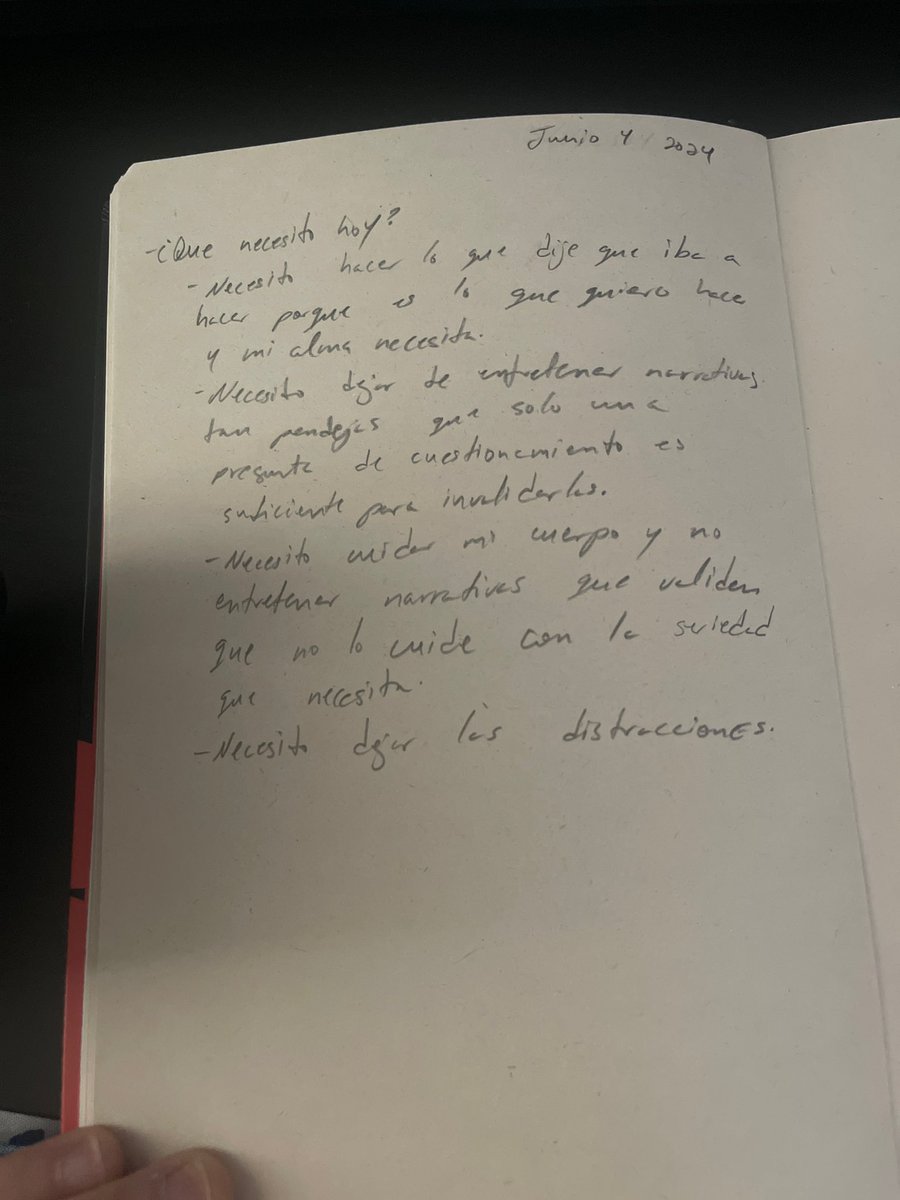 Junio 4 2024
-¿Que necesito hoy?
- Necesito hacer lo que dije que iba a
hacer porque es lo que quiero hacer
y mi alma necesita.
- Necesito dejar de entretener narrativas
tan pendejas que solo una
pregunta de cuestionamiento es
suficiente para invalidarlas.
- Necesito cuidar mi cuerpo y no
entretener narrativas que validen
que no lo cuide con la seriedad
que necesita.
- Necesito dejar las distracciones.